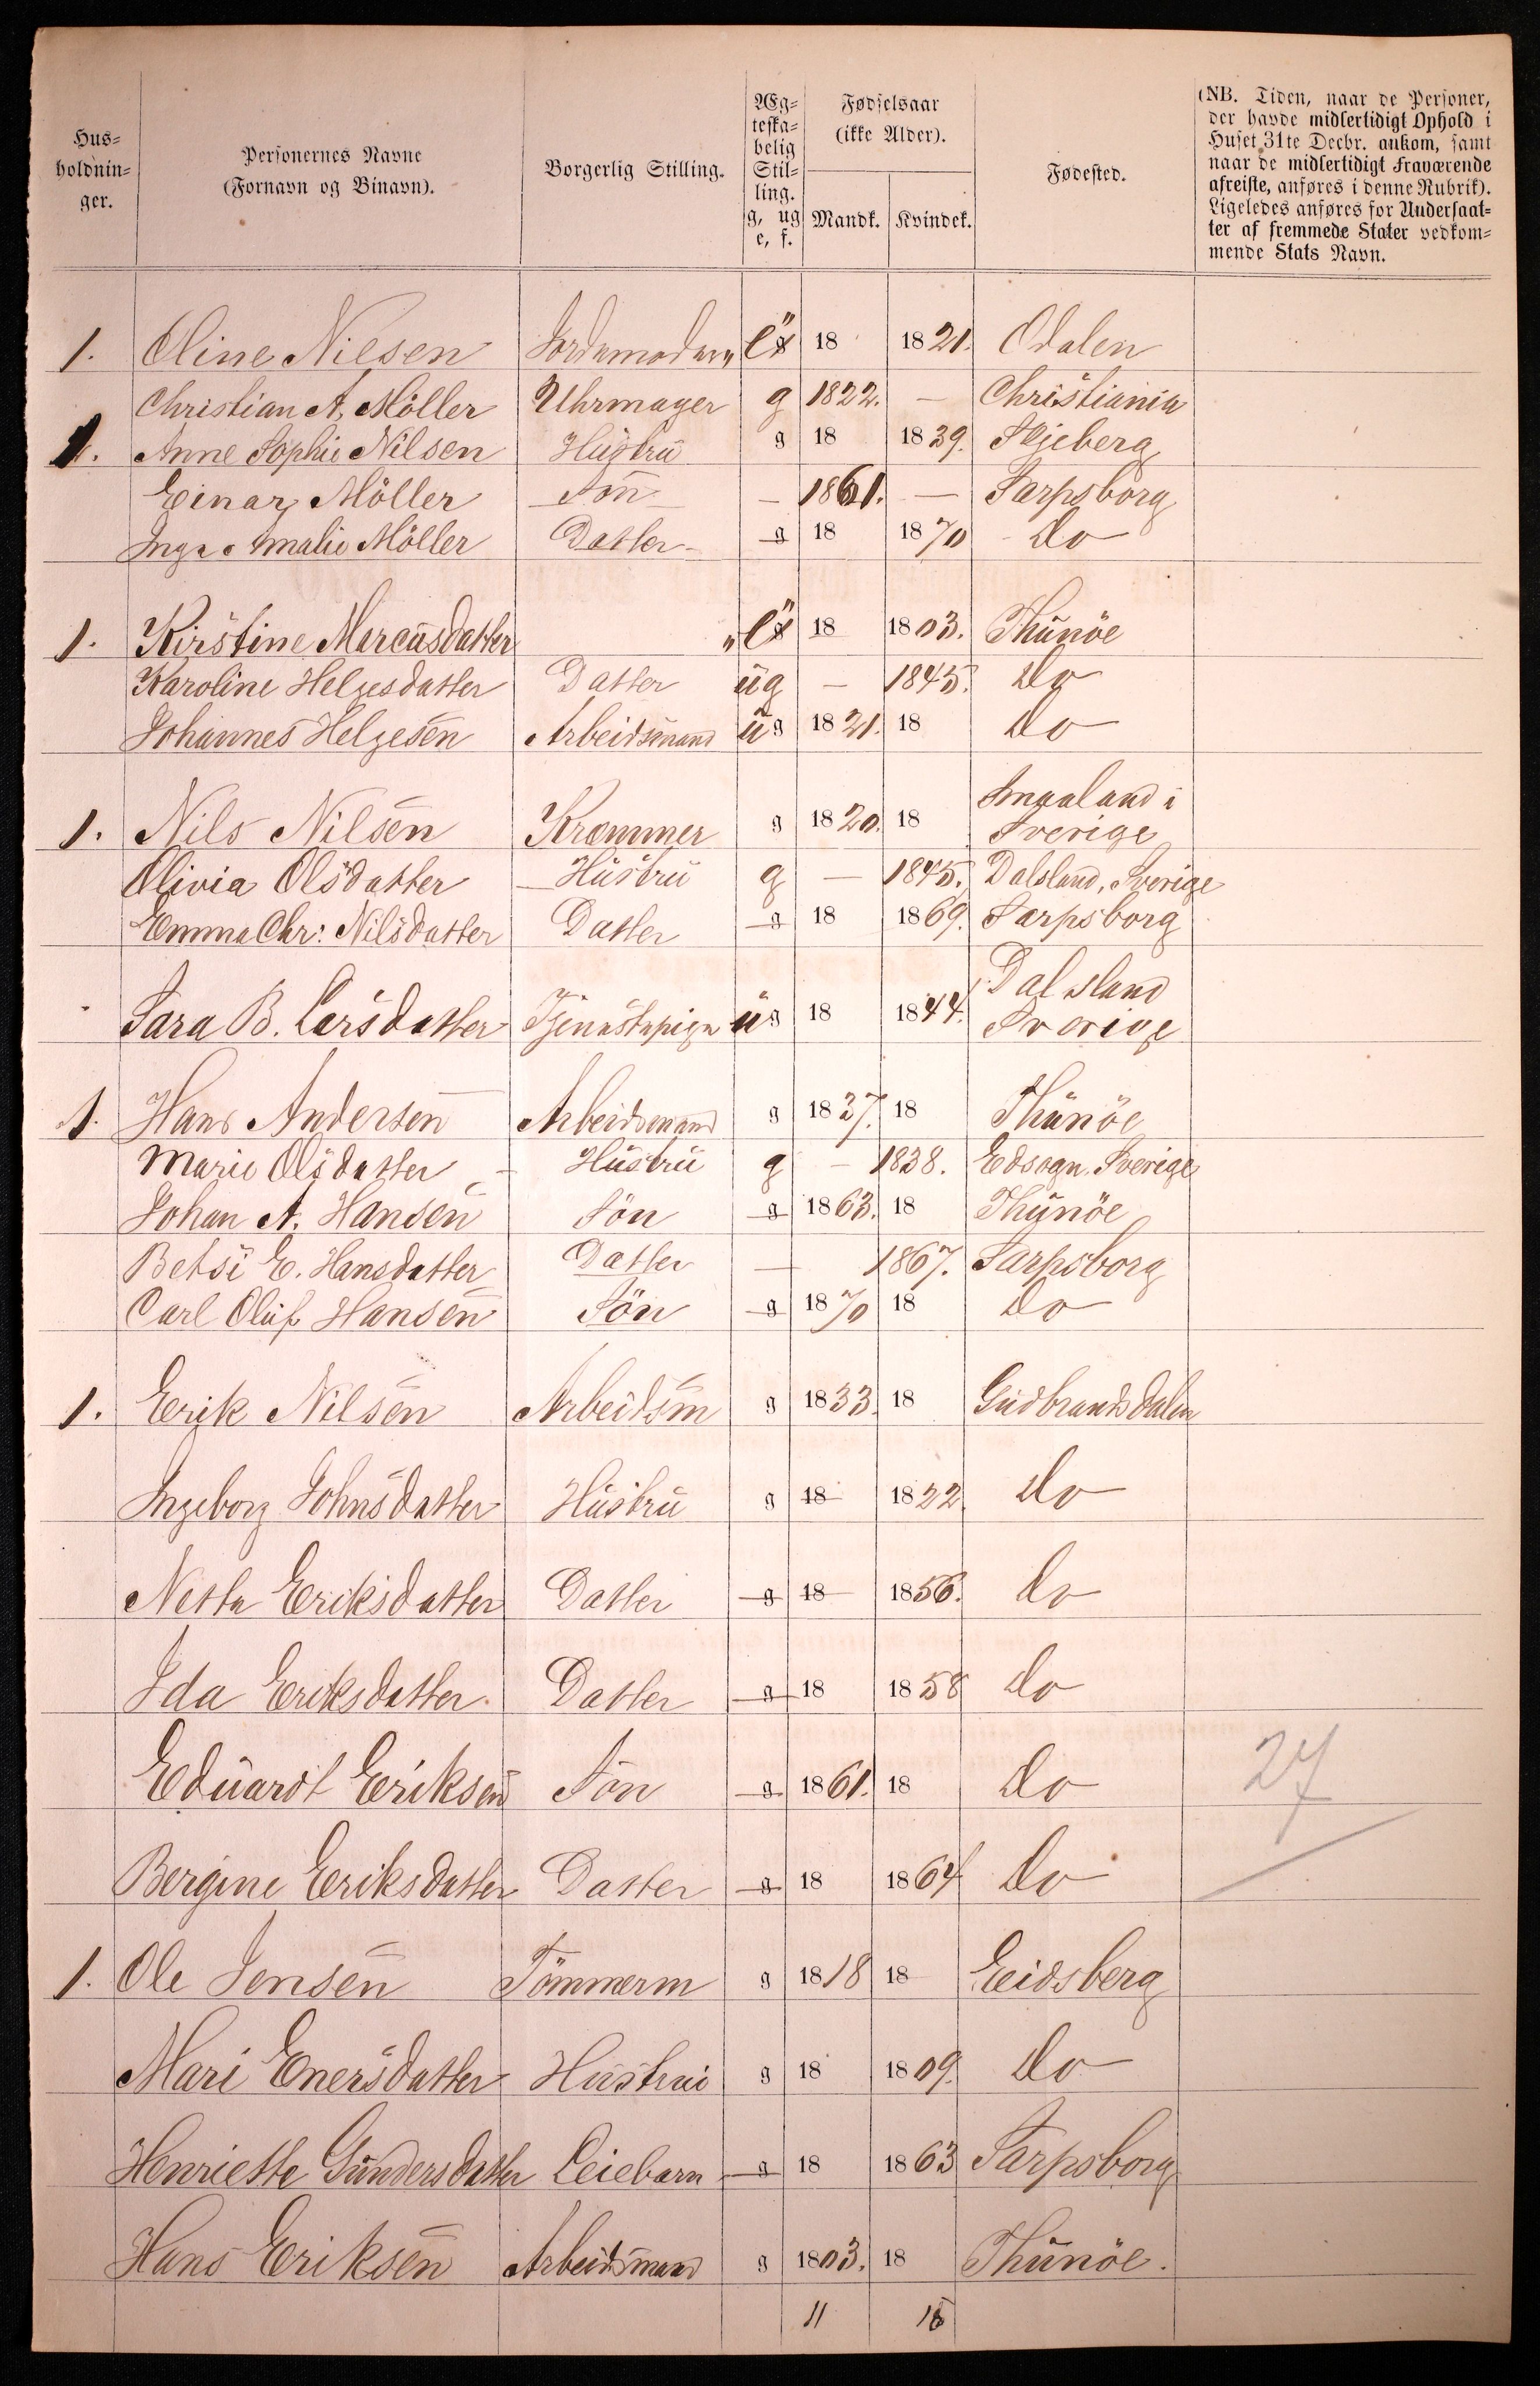 Hus-
holdnin-
ger.
Personernes Navne
(Fornavn og Binavn).
Borgerlig Stilling.
Æg-
teska-
belig
Stil-
ling.
g, ug
e, f.
Fødselsaar
(ikke Alder).
Mandk. Kvindek.
Fødested.
(NB. Tiden, naar de Personer,
der havde midlertidigt Ophold i
Huset 31te Decbr. ankom, samt
naar de midlertidigt Fraværende
afreiste, anføres i denne Rubrik).
Ligeledes anføres for Undersaat-
ter af fremmede Stater vedkom-
mende Stats Navn.
1. Oline Nilsen Jordemoder e 18 1821. Odalen
Christian A. Möller Uhrmager g 1822. — Christiania
1. Anne Sophie Nilsen Hustru g 18 1839. Skjeberg
Einar Möller Sön — 1861. — Sarpsborg
Inga Amalie Möller Datter g 18 1870 do
1. Kirstine Marcusdatter e 18 1803. Thunöe
Karoline Helgesdatter Datter ug — 1845. do
Johannes Helgesen Arbeidsmand ug 1821. 18 do
1. Nils Nilsen Kræmmer g 1820. 18 Smaaland i
Sverige
Olivia Olsdatter Hustru g — 1845. Dalsland, Sverige
Emma Chr: Nilsdatter Datter g 18 1869. Sarpsborg
Sara B. Larsdatter Tjenestepige ug 18 1844. Dalsland
Sverige
1. Hans Andersen Arbeidsmand g 1837. 18 Thunöe
Marie Olsdatter Hustru g — 1838. Edsogn. Sverige
Johan A. Hansen Sön g 1863. 18 Thunöe
Betsi E. Hansdatter Datter — 1867. Sarpsborg
Carl Oluf Hansen Sön g 1870 18 do
1. Erik Nilsen Arbeidsm g 1833. 18 Gudbrandsdalen
Ingeborg Johnsdatter Hustru g 18 1822 do
Netta Eriksdatter Datter g 18 1856. do
Ida Eriksdatter. Datter g 18 1858 do
Eduardt Eriksen Sön g 1861. 18 do
27
Bergine Eriksdatter Datter g 18 1864 do
1. Ole Jensen Tömmerm g 1818 18 Eidsberg
Mari Enersdatter Hustru g 18 1809. do
Henriette Gundersdatter Leiebarn g 18 1863 Sarpsborg
Hans Eriksen Arbeidsmand g 1803. 18 Thunöe.
11 16